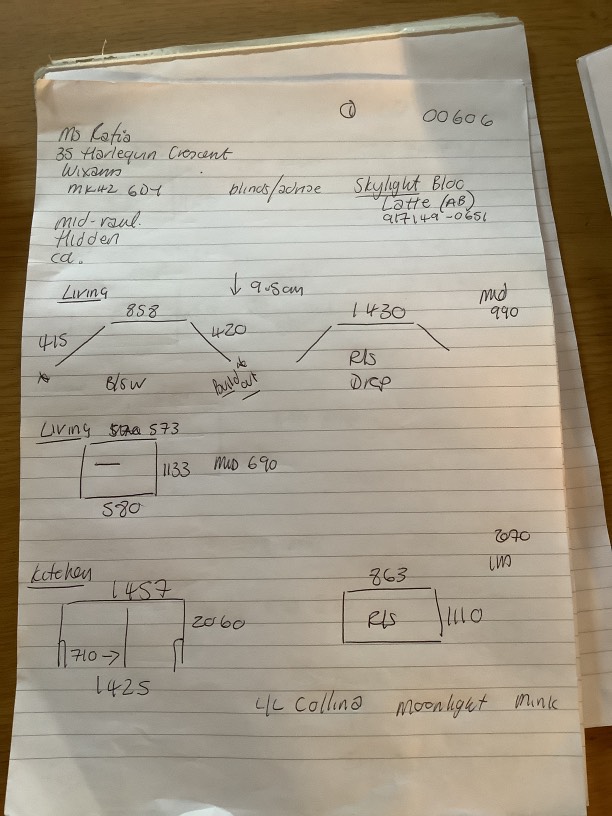 ① 00606
Ms Katia
35 Harlequin Crescent
Wixams
MK42 6DY blinds/advise Skylight Bloc
Latte (AB)
917149-0651
mid-rail.
Hidden
cd.
Living ↓ 9.5cm
858 1430 mid
990
415 420
B/SW Build out R/S
Drop
Living 573
1133 MID 690
580
2070
Kitchen
1457 863
2060 R/S 1110
710 →
1425
L/L Collina Moonlight Mink